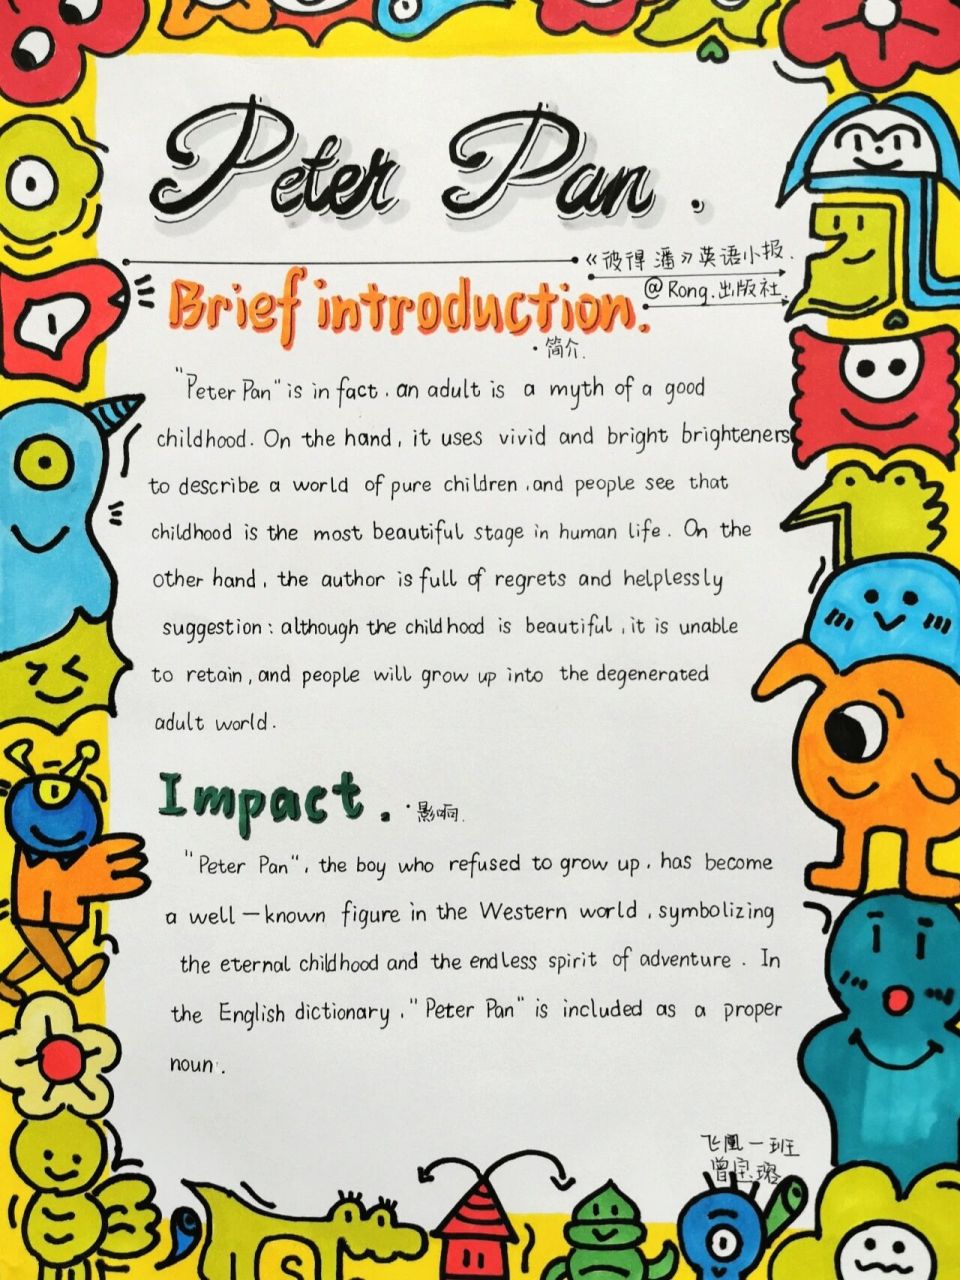 Peter Pan.
《彼得 潘》英语小报.
@Rong.出版社.
Brief introduction.
·简介.
"Peter Pan" is in fact, an adult is a myth of a good
childhood. On the hand, it uses vivid and bright brighteners
to describe a world of pure children, and people see that
childhood is the most beautiful stage in human life. On the
other hand, the author is full of regrets and helplessly
suggestion: although the childhood is beautiful, it is unable
to retain, and people will grow up into the degenerated
adult world.
Impact.
·影响.
"Peter Pan", the boy who refused to grow up, has become
a well-known figure in the Western world, symbolizing
the eternal childhood and the endless spirit of adventure. In
the English dictionary, "Peter Pan" is included as a proper
noun.
飞凰一班
曾宝璐
S